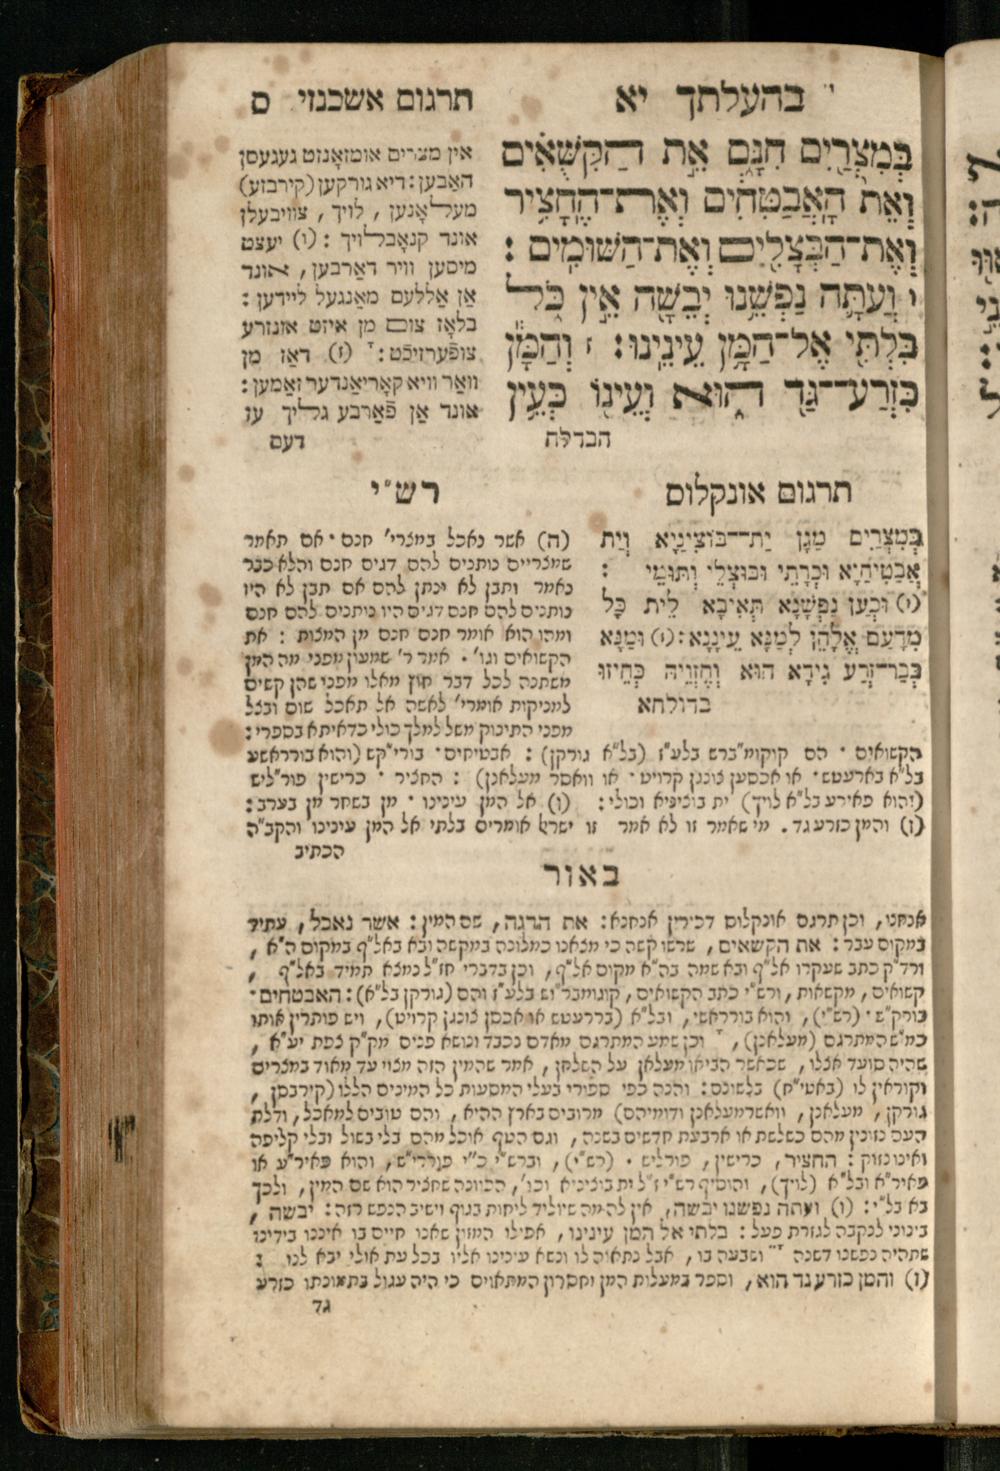 בהעלתך יא
תרגום אשכנזי ס
בְּמִצְרַ֖יִם חִנָּ֑ם אֵ֣ת הַקִּשֻּׁאִ֗ים
וְאֵת֙ הָֽאֲבַטִּחִ֔ים וְאֶת־הֶחָצִ֥יר
וְאֶת־הַבְּצָלִ֖ים וְאֶת־הַשּׁוּמִֽים :
ו וְעַתָּ֛ה נַפְשֵׁ֥נוּ יְבֵשָׁ֖ה אֵ֣ין כֹּ֑ל
בִּלְתִּ֖י אֶל־הַמָּ֥ן עֵינֵֽינוּ : ז וְהַמָּ֕ן
כִּזְרַע־גַּ֖ד ה֑וּא וְעֵינ֖וֹ כְּעֵ֥ין
הבדלח
אין מצרים אומזאָנזט געגעסן
האַבען : דיא גורקען (קירבזע)
מעלאָנען , לויך , צוויבעלן
אונד קנאָבלויך : (ו) יעצט
מיסען וויר דאַרבען , אונד
אַן אַללעם מאַנגעל ליידען :
בלאָז צום מן איזט אונזרע
צופֿערזיכֿט : (ז) דאַז מן
וואַר וויא קאָריאַנדער זאַמען :
אונד אַן פֿאַרבע גלייך עז
דעם
תרגום אונקלוס
בְּמִצְרַיִם מַגָּן יַת־בּוֹצִינַיָּא וְיַת
אֲבַטִּיחַיָּא וּכְרָתֵי וּבוּצְלֵי וְתוּמֵי :
(ו) וּכְעַן נַפְשָׁנָא תְּאִיבָא לֵית כָּל
מִדָּעַם אֱלָהֵן לְמַנָּא עֵינָנָא : (ז) וּמַנָּא
כְּבַר־זְרַע גִּידָא הוּא וְחֶזְוֵיהּ כְּחֵיזוּ
בדולחא
רש"י
(ה) אשר נאכל במצרי' חנם • אם תאמר
שמצריים נותנים להם דגים חנם והלא כבר
נאמר ותבן לא ינתן להם אם תבן לא היו
נותנים להם חנם דגים היו נותנים להם חנם
ומהו הוא אומר חנם חנם מן המצות : את
הקשואים וגו' • אמר ר' שמעון מפני מה המן
משתנה לכל דבר חוץ מאלו מפני שהן קשים
למניקות אומרי' לאשה אל תאכל שום ובצל
מפני התינוק משל למלך כולי כדאיתא בספרי :
הקשואים • הם קוקומ"ברש בלע"ז (בל"א גורקן) : אבטיחים • בורי"קש (והוא בורראשע
בל"א בארעטש • או אכסען צונגן קרויט • או וואסר מעלאנן) : החציר • כרישין פור"ליש
(והוא פאירע בל"א לויך) ית בוציניא וכולי : (ו) אל המן עינינו • מן בשחר מן בערב :
(ז) והמן כזרע גד . מי שאמר זו לא אמר זו ישראל אומרים בלתי אל המן עינינו והקב"ה
הכתיב
באור
אנחנו, וכן תרגם אונקלוס דכירין אנחנא : את הדגה, שם המין : אשר נאכל, עתיד
במקום עבר : את הקשאים, שרשו קשה כי מצאנו כמלונה במקשה ובא באל"ף במקום ה"א ,
ורד"ק כתב שעקרו אל"ף ובא שמה בה"א מקום אל"ף, וכן בדברי חז"ל נמצא תמיד באל"ף ,
קשואים, מקשאות, ורש"י כתב הקשואים, קוגומבר"וש בלע"ז והם (גורקן בל"א) : האבטחים •
בורק"ש • (רש"י), והוא בורראשי, ובל"א (בררעטש או אכסן צונגן קרויט), ויש פותרין אותו
כמ"ש המתרגם (מעלאנן), וכן שמע המתרגם מאדם נכבד ונושא פנים מק"ק צפת יע"א ,
שהיה סועד אצלו, שכאשר הביאו מעלאן על השלחן, אמר שהמין הזה מצוי עד מאוד במצרים
וקוראין לו (באטי"ח) בלשונם : והנה כפי ספורי בעלי המסעות כל המינים הללו (קירבסן ,
גורקן, מעלאנן, וואשרמעלאנן ודומיהם) מרובים בארץ ההיא, והם טובים למאכל, ודלת
העם נזונין מהם כשלשת או ארבעת חדשים בשנה, וגם הטף אוכל מהם בלי בשול ובלי קליפה
ואינו נזוק : החציר, כרישין, פורליש • (רש"י), וברש"י כ"י פוררי"ש, והוא פאיר"ע או
פאיר"א ובל"א (לויך), והוסיף רש"י ז"ל ית בוציניא וכו', הכוונה שחציר הוא שם המין, ולכך
בא בל"י : (ו) ועתה נפשנו יבשה, אין לה מה שיוליד ליחות בגוף וישיב הנפש רזה : יבשה ,
בינוני לנקבה לגזרת פעל : בלתי אל המן עינינו, אפילו המזון שאנו חיים בו איננו בידינו
שתהיה נפשנו דשנה ושבעה בו, אבל נתאוה לו ונשא עינינו אליו בכל עת אולי יבא לנו :
(ז) והמן כזרע גד הוא, וספר במעלות המן וחסרון המתאוים כי היה עגול בתמונתו כזרע
גד